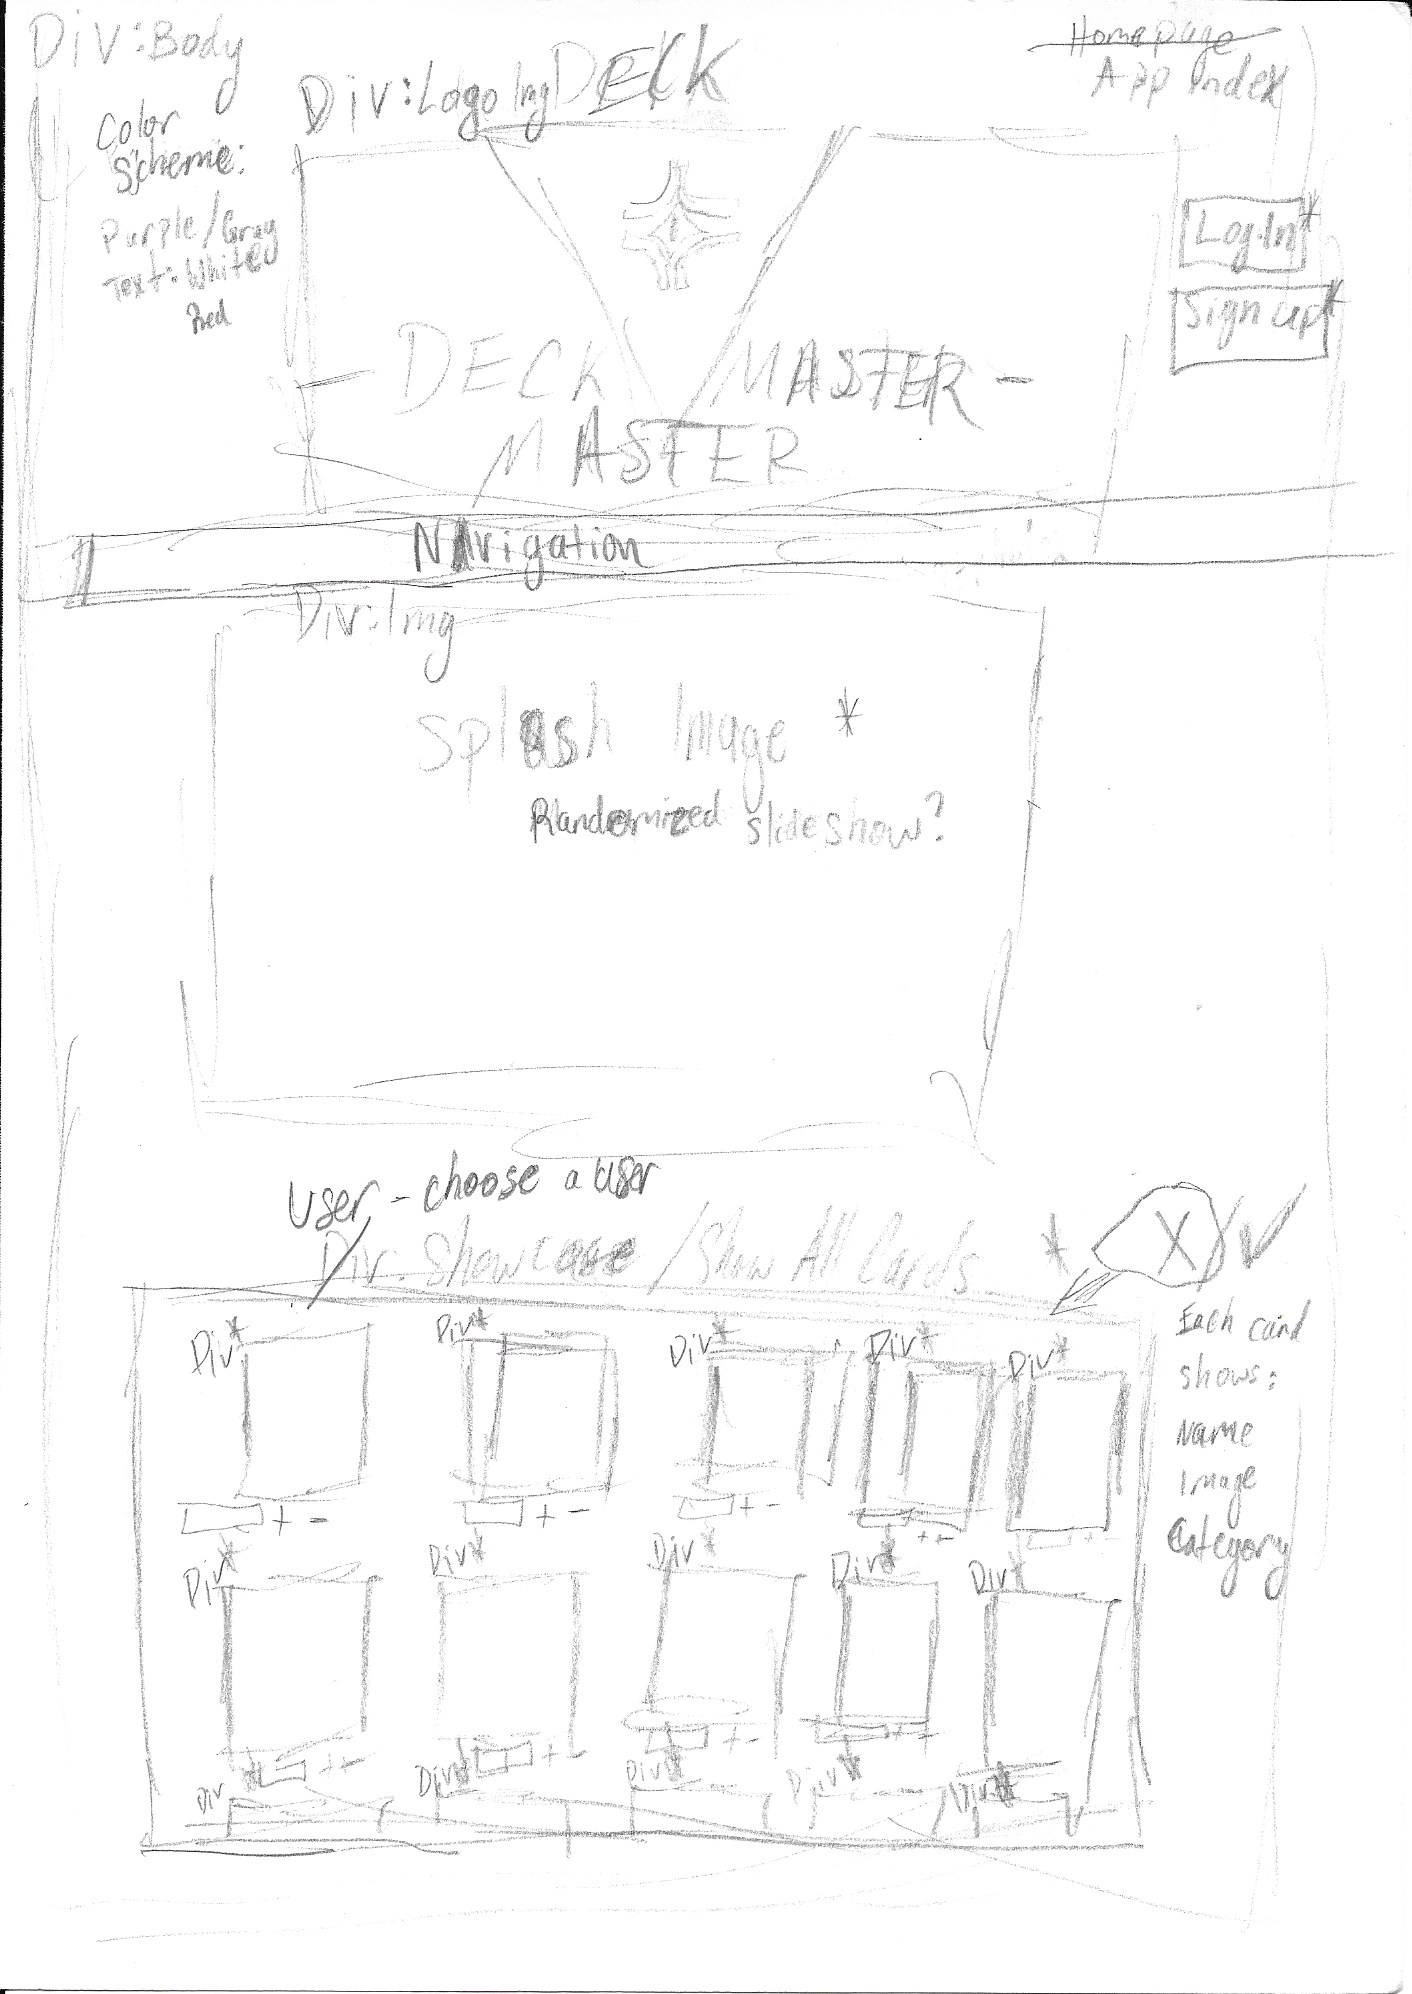 Div:Body
Div:Logo Img DECK
Homepage
App index
Color
Scheme:
Purple/Gray
Text: White
Red
Log.In*
Sign up*
- DECK MASTER -
MASTER
Navigation
Div:Img
Splash Image *
Randomized slideshow?
User - choose a user
Div: Showcase / Show All Cards *
X/✓
Each card
shows:
Name
Image
Category
Div* Div* Div* Div* Div*
+ - + - + - + - + -
Div* Div* Div* Div* Div*
+ - + - + - + - 
Div Div* Div* Div* Div*